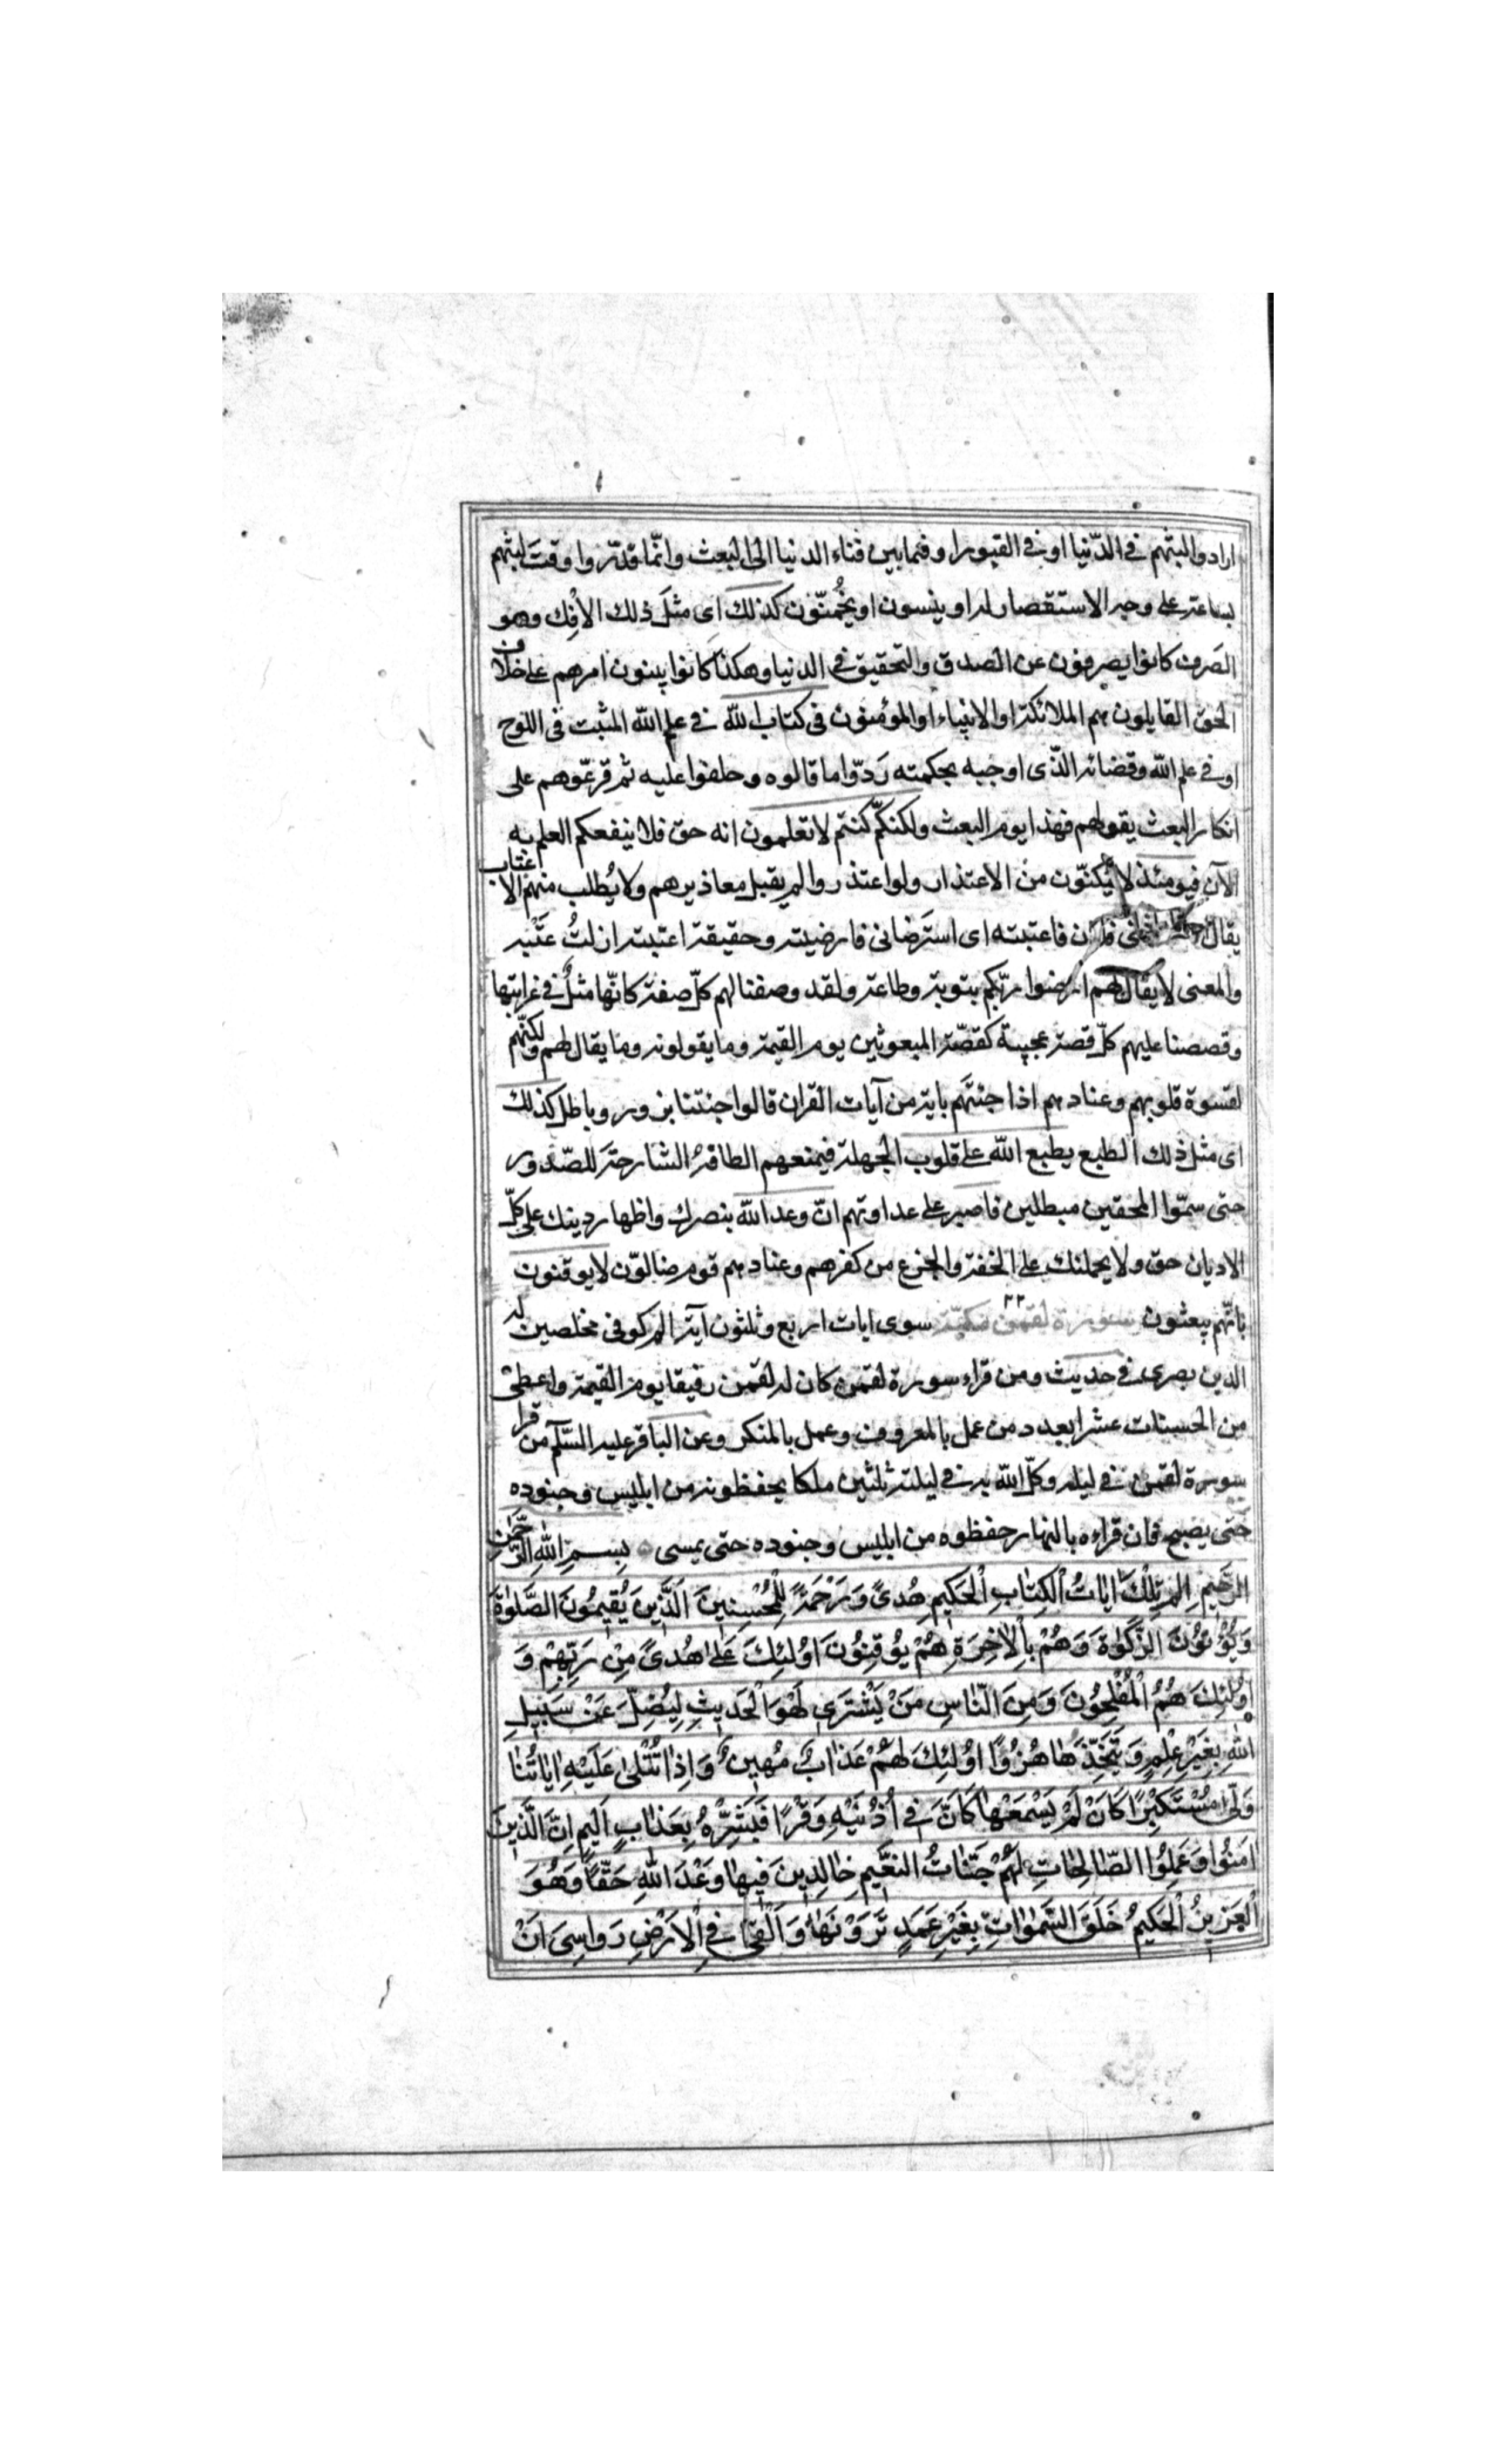 ارادوا لبثهم فى الدّنيا او فى القبور او فيما بين فناء الدنيا الى البعث وانّما قدّروا وقت لبثهم
بساعة على وجه الاستقصار له او ينسون او يخمّنون كذلك اى مثل ذلك الأفك وهو
الصرف كانوا يصرفون عن الصدق والتحقيق فى الدنيا وهكذا كانوا يبنون امرهم على خلاف
الحق القايلون هم الملائكة او الانبياء او المؤمنون فى كتاب الله فى علم الله المثبت فى اللوح
او فى علم الله وقضائه الّذى اوجبه بحكمته ردّوا ما قالوه وحلفوا عليه ثم قرعّوهم على
انكار البعث بقولهم فهذا يوم البعث ولكنكم كنتم لا تعلمون انه حق فلا ينفعكم العلم به
الآن فيومئذ لا يمكنّون من الاعتذار ولو اعتذروا لم يقبل معاذيرهم ولا يُطلب منهم الاعتاب
يقال فلان فاعتبته اى استرضانى فارضيته وحقيقة اعتبته ازلتُ عتبه
والمعنى لا يقال لهم ارضوا ربّكم بتوبة وطاعة ولقد وصفنا لهم كلّ صفة كانّها مثلٌ فى غرابتها
وقصصنا عليهم كلّ قصة عجيبة كقصّة المبعوثين يوم القيمة وما يقولونه وما يقال لهم ولكنّهم
لقسوة قلوبهم وعنادهم اذا جئتَهم باية من آيات القران قالوا جئتنا بزور وباطل كذلك
اى مثل ذلك الطبع يطبع الله على قلوب الجهلة فيمنعهم الطافه الشارحة للصّدور
حتى سمّوا المحقين مبطلين فاصبر على عداوتهم انّ وعد الله بنصرك واظهار دينك على كلّ
الاديان حق ولا يحملنك على الخفة والجزع من كفرهم وعنادهم قوم ضالوّن لا يوقنون
بانّهم يبعثون سورة لقمن مكيّة سوى ايات اربع وثلثون آية الم كوفى مخلصين له
الدين بصرى فى حديث ومن قراء سورة لقمن كان له لقمن رفيقا يوم القيمة واعطى
من الحسنات عشرا بعدد من عمل بالمعروف وعمل بالمنكر وعن الباقر عليه السّلم من قرا
سورة لقمن فى ليله وكلّ الله به فى ليلته ثلثين ملكا يحفظونه من ابليس وجنوده
حتى يصبح فان قراءه بالنهار حفظوه من ابليس وجنوده حتى يمسى بِسمِ اللهِ الرَّحمنِ
الرَّحيمِ الم تِلْكَ اياتُ الْكِتابِ الْحَكيمِ هُدىً وَرَحْمَةً لِلْمُحْسِنينَ اَلَّذينَ يُقيمُونَ الصَّلوٰةَ
وَيُؤْتُونَ الزَّكوٰةَ وَهُمْ بِالْاٰخِرَةِ هُمْ يُوقِنُونَ اوُلئِكَ عَلىٰ هُدىً مِنْ رَبِّهِمْ وَ
اوُلئِكَ هُمُ الْمُفْلِحُونَ وَمِنَ النّاسِ مَنْ يَشْتَرى لَهْوَ الْحَديثِ لِيُضِلَّ عَنْ سَبيلِ
اللهِ بِغَيْرِ عِلْمٍ وَيَتَّخِذَها هُزُوًا اوُلئِكَ لَهُمْ عَذابٌ مُهينٌ وَاِذا تُتْلىٰ عَلَيْهِ اياتُنا
وَلّىٰ مُسْتَكْبِرًا كَاَنْ لَمْ يَسْمَعْها كَاَنَّ فى اُذُنَيْهِ وَقْرًا فَبَشِّرْهُ بِعَذابٍ اَليمٍ اِنَّ الَّذينَ
امَنُوا وَعَمِلُوا الصّالِحاتِ لَهُمْ جَنّاتُ النَّعيمِ خالِدينَ فيها وَعْدَ اللهِ حَقّاً وَهُوَ
الْعَزيزُ الْحَكيمُ خَلَقَ السَّمٰواتِ بِغَيْرِ عَمَدٍ تَرَوْنَها وَاَلْقىٰ فِى الْاَرْضِ رَواسِىَ اَنْ